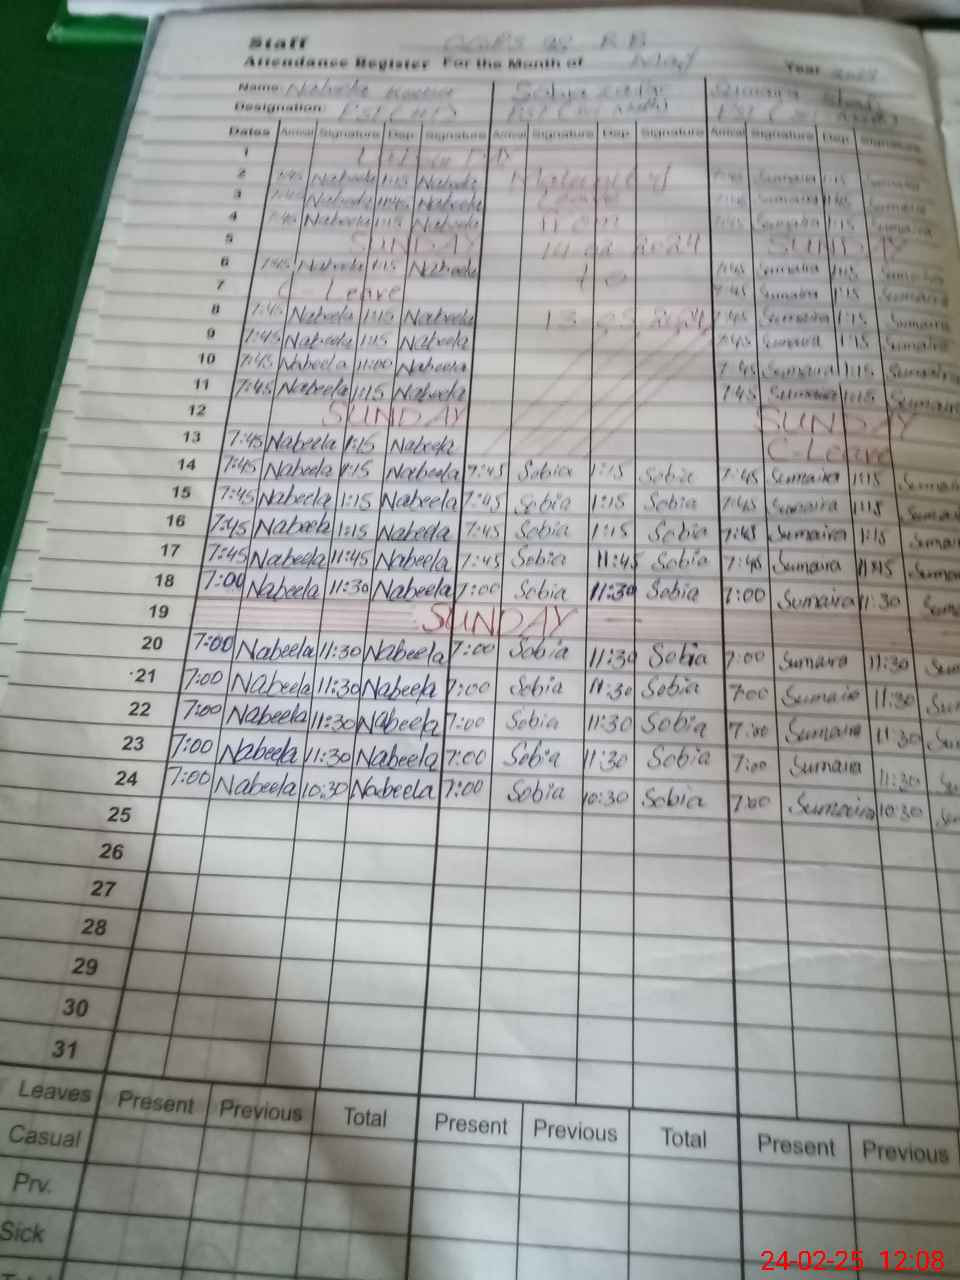 Staff
Attendance Register For the Month of May Year 2024
Name: Nabeela
Designation:
Dates Arrival Signature Dep. Signature Arrival Signature Dep. Signature Arrival Signature Dep. Signature
1 DAY
2 7:45 Nabeela 1:15 Nabeela Maternity 7:45 Sumaira 1:15 Sumaira
3 7:45 Nabeela Nabeela Leave 7:45 Sumaira Sumaira
4 7:45 Nabeela 1:15 Nabeela From 7:45 Sumaira 1:15 Sumaira
5 SUNDAY 2024 SUNDAY
6 7:45 Nabeela 1:15 Nabeela to 7:45 Sumaira 1:15 Sumaira
7 C-Leave 7:45 Sumaira 1:15 Sumaira
8 7:45 Nabeela 1:15 Nabeela 7:45 Sumaira 1:15 Sumaira
9 7:45 Nabeela 1:15 Nabeela 7:45 Sumaira 1:15 Sumaira
10 7:45 Nabeela 11:00 Nabeela 7:45 Sumaira 1:15 Sumaira
11 7:45 Nabeela 1:15 Nabeela 7:45 Sumaira 1:15 Sumaira
12 SUNDAY SUNDAY
13 7:45 Nabeela 1:15 Nabeela C-Leave
14 7:45 Nabeela 1:15 Nabeela 7:45 Sobia 1:15 Sobia 7:45 Sumaira 1:15
15 7:45 Nabeela 1:15 Nabeela 7:45 Sobia 1:15 Sobia 7:45 Sumaira 1:15
16 7:45 Nabeela 1:15 Nabeela 7:45 Sobia 1:15 Sobia 7:45 Sumaira 1:15
17 7:45 Nabeela 11:45 Nabeela 7:45 Sobia 11:45 Sobia 7:45 Sumaira 11:45
18 7:00 Nabeela 11:30 Nabeela 7:00 Sobia 11:30 Sobia 7:00 Sumaira 11:30
19 SUNDAY
20 7:00 Nabeela 11:30 Nabeela 7:00 Sobia 11:30 Sobia 7:00 Sumaira 11:30
21 7:00 Nabeela 11:30 Nabeela 7:00 Sobia 11:30 Sobia 7:00 Sumaira 11:30
22 7:00 Nabeela 11:30 Nabeela 7:00 Sobia 11:30 Sobia 7:00 Sumaira 11:30
23 7:00 Nabeela 11:30 Nabeela 7:00 Sobia 11:30 Sobia 7:00 Sumaira 11:30
24 7:00 Nabeela 10:30 Nabeela 7:00 Sobia 10:30 Sobia 7:00 Sumaira 10:30
25
26
27
28
29
30
31
Leaves Present Previous Total Present Previous Total Present Previous
Casual
Prv.
Sick
24-02-25 12:08